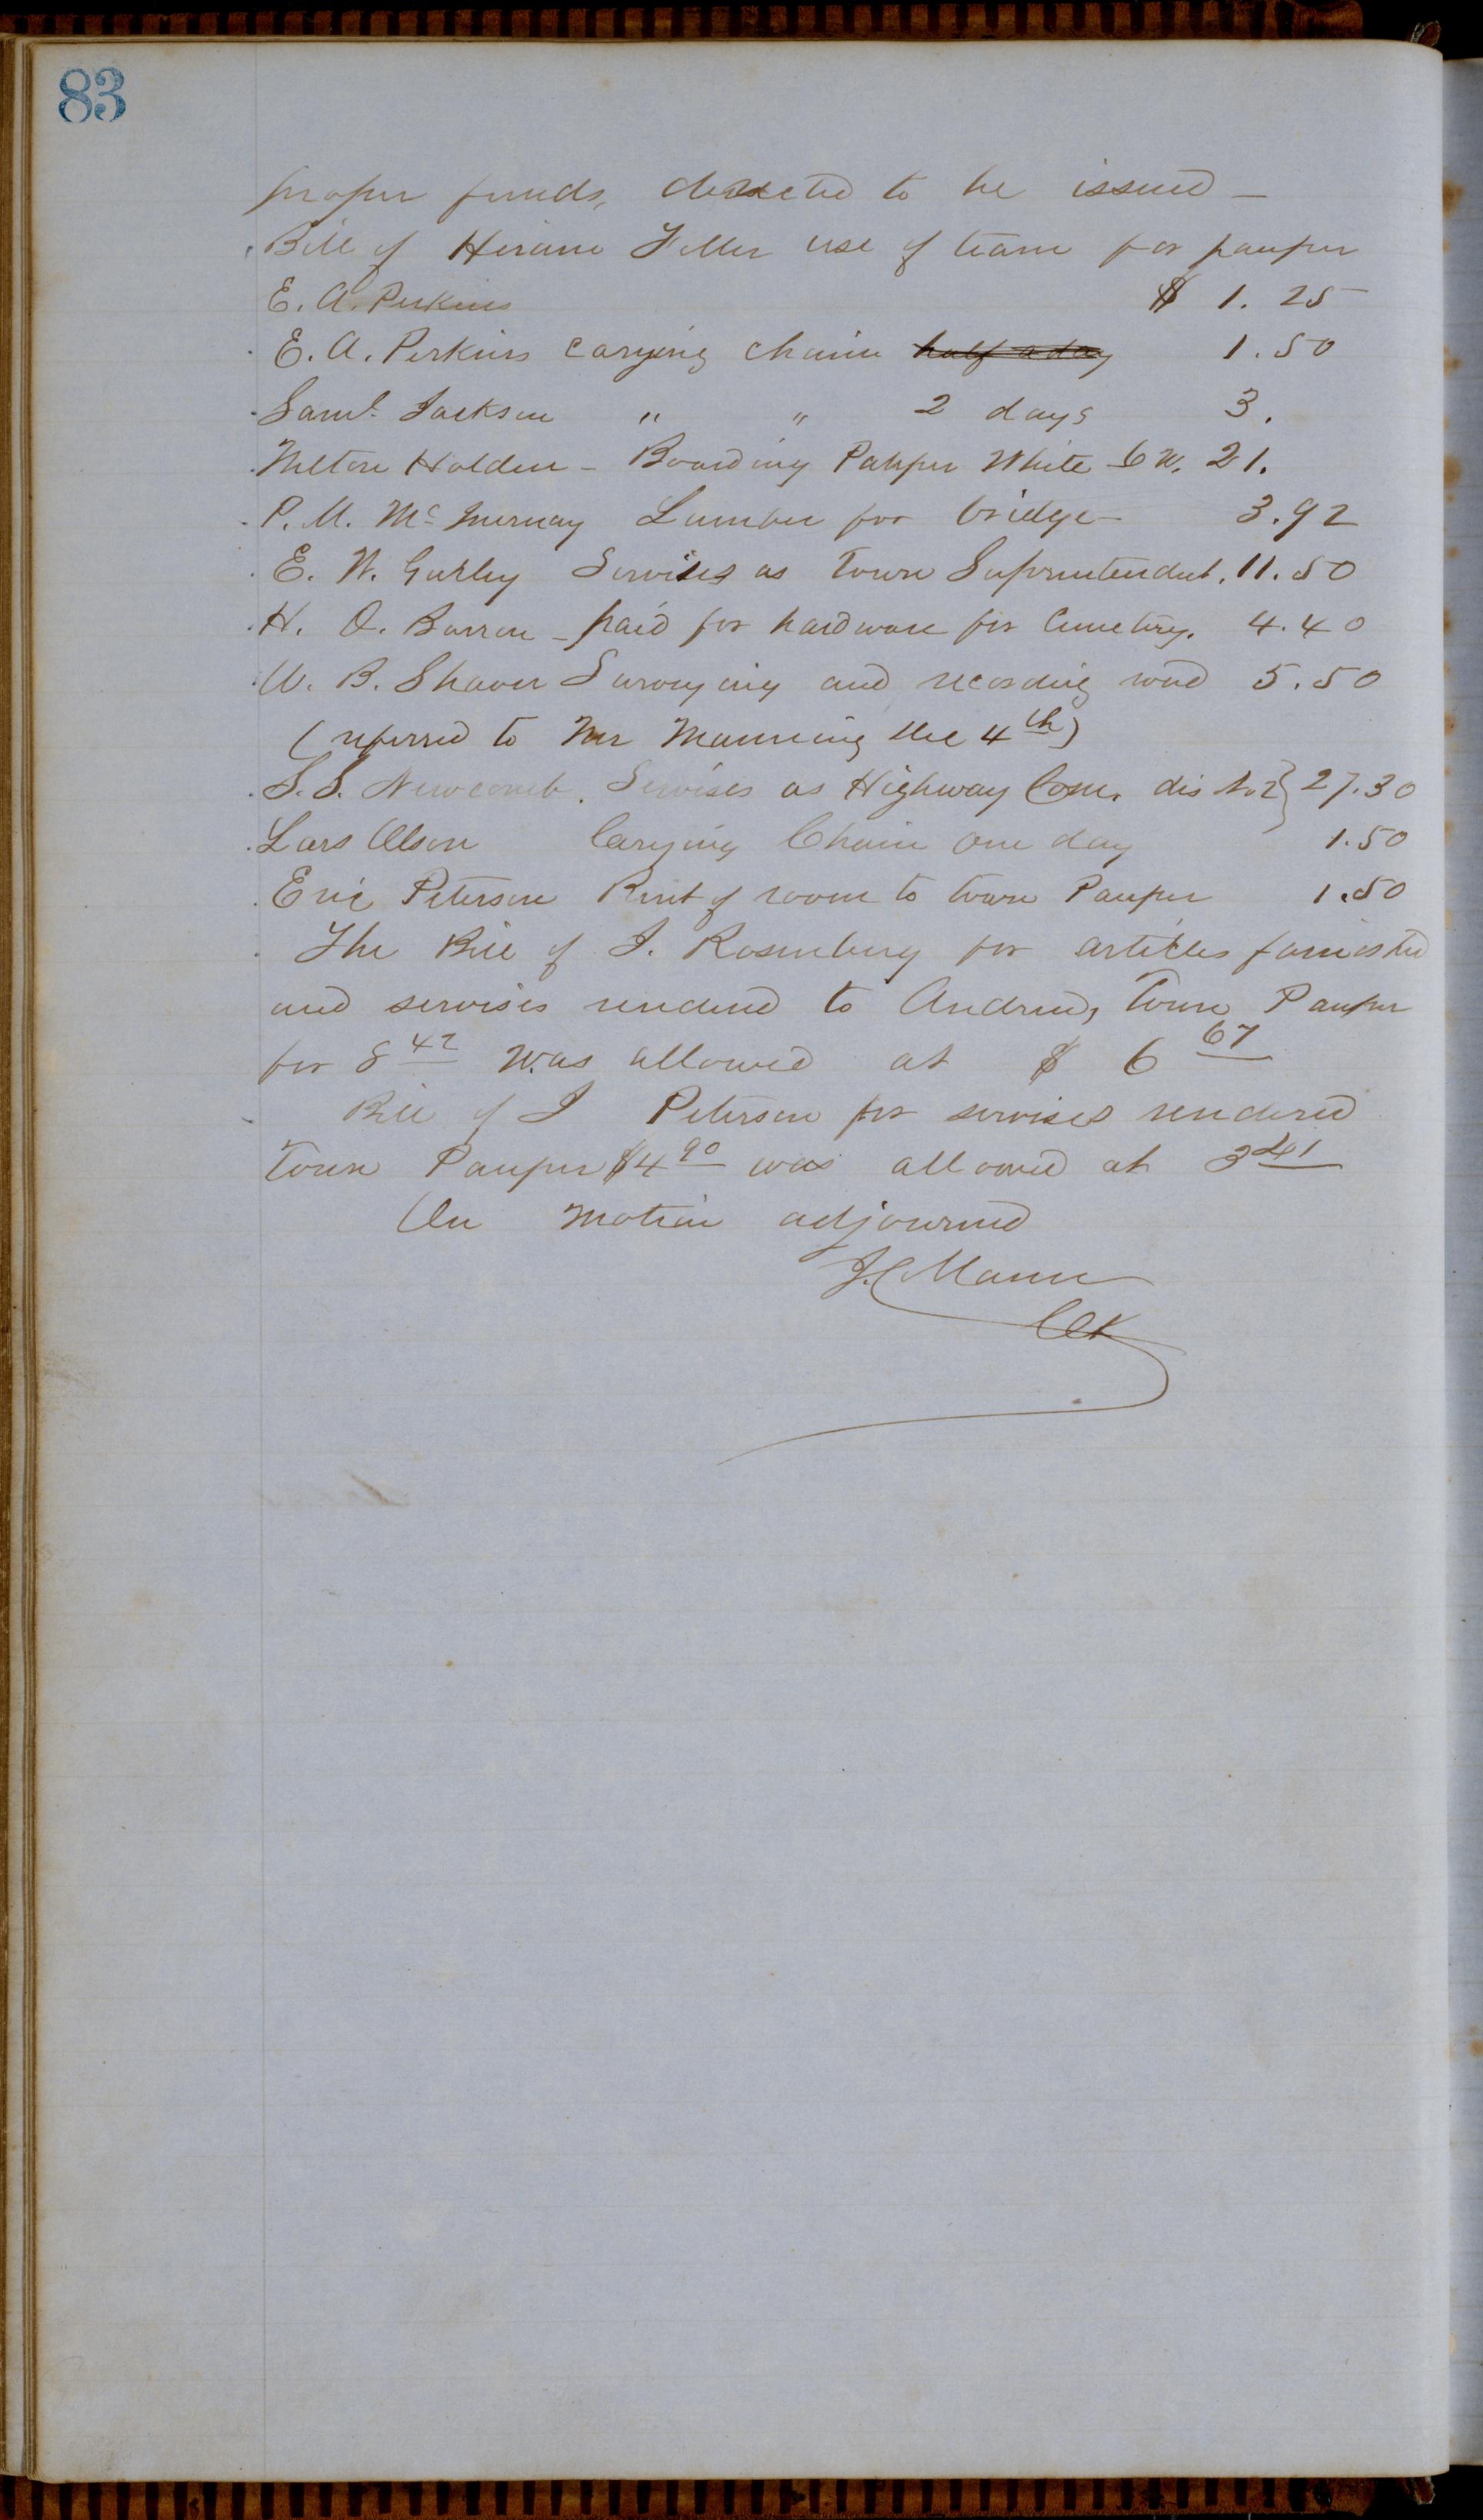 83
proper funds, directed to be issued —
Bill of Hiram Filler use of team for pauper
E. A. Perkins $ 1. 25
E. A. Perkins Carying Chain half a day 1.50
Saml. Jackson " " 2 days 3.
Milton Holden - Boarding Pauper White 6 W. 21.
P. M. Mc Inernay Lumber for bridge 3.92
E. W. Gurley Servises as Town Suprintendent. 11.50
H. O. Barron - paid for hardware for Cemetery. 4.40
W. B. Shaver Surveying and recording road 5.50
(referred to Mr Manning the 4th)
S. S. Newcomb. Servises as Highway Com. dis No 2} 27.30
Lars Olson Carying Chain one day 1.50
Eric Peterson Rent of room to town Pauper 1.50
The Bill of I. Rosenberg for articles furnished
and servises rendered to Andrew, Town Pauper
for 8 42 was allowed at $ 6 67
Bill of I Peterson for servises rendered
Town Pauper $4 90 was allowed at 3 41
On Motion adjourned
J. C. Mann
Clk